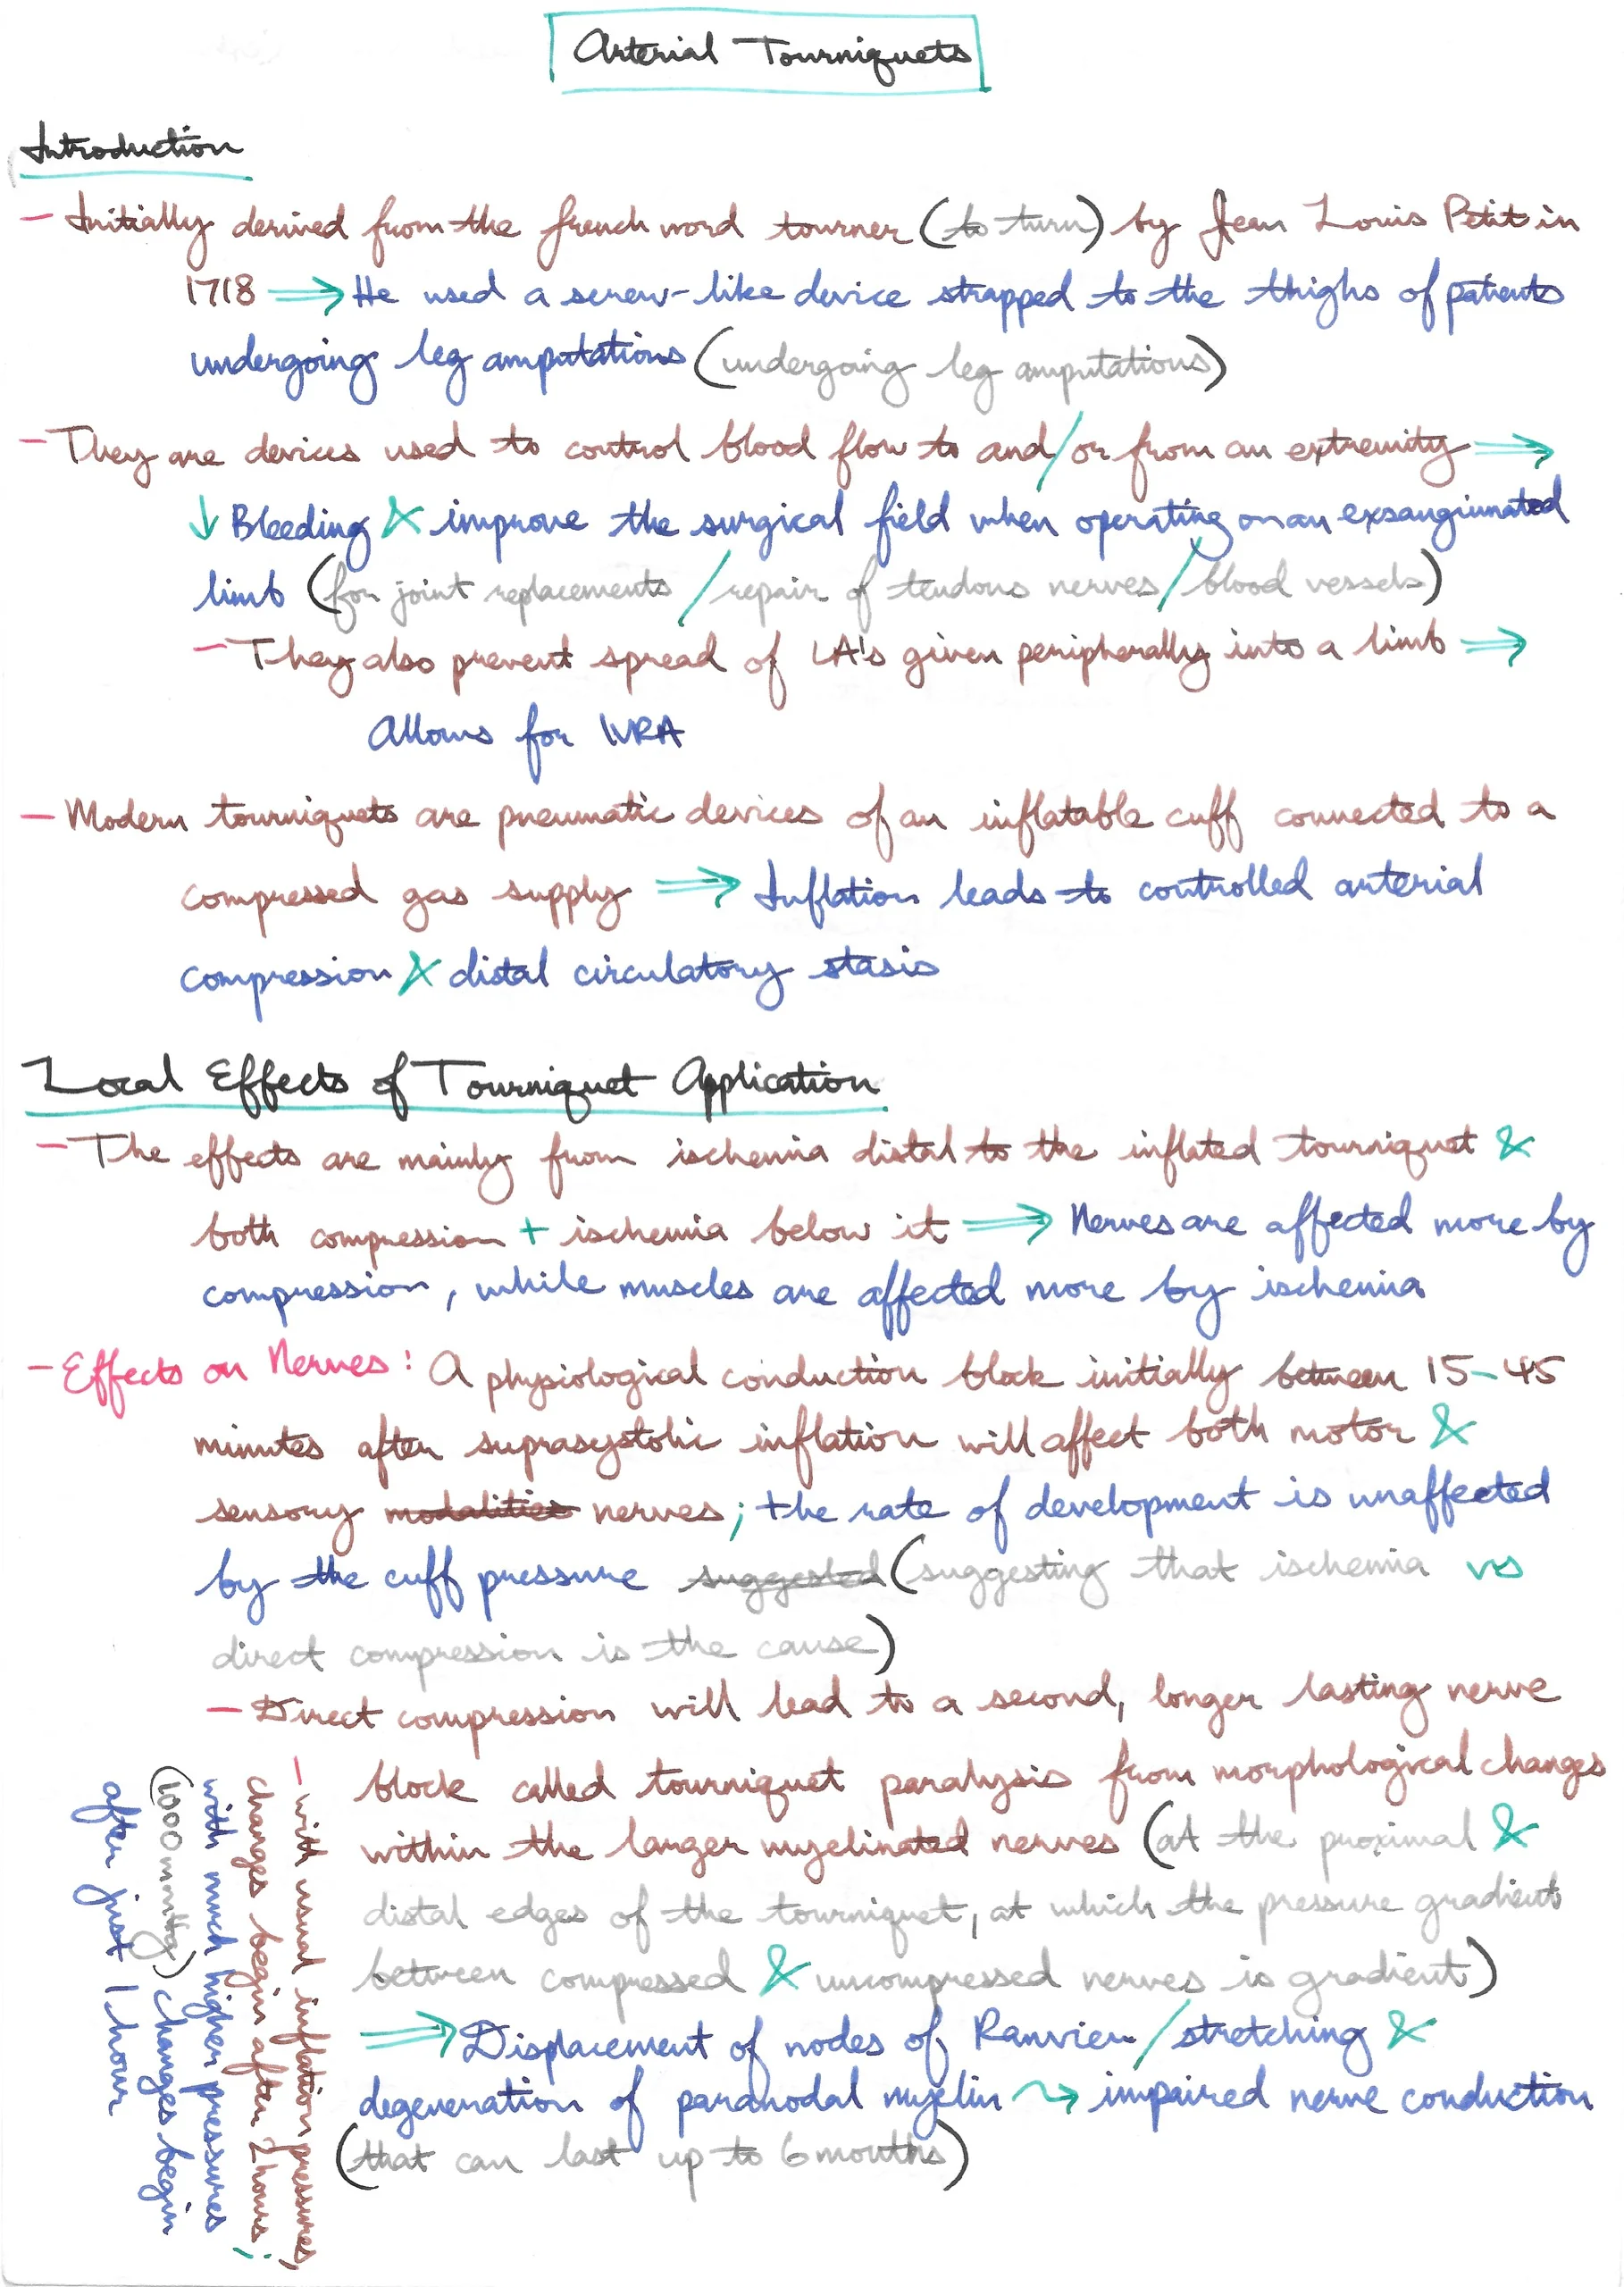 Arterial Tourniquets
Introduction
- Initially derived from the french word tourner (to turn) by Jean Louis Petit in
1718 ⇒ He used a screw-like device strapped to the thighs of patients
undergoing leg amputations (undergoing leg amputations)
- They are devices used to control blood flow to and/or from an extremity ⇒
↓ Bleeding & improve the surgical field when operating on an exsanguinated
limb (for joint replacements / repair of tendons nerves / blood vessels)
- They also prevent spread of LA's given peripherally into a limb ⇒
Allows for IVRA
- Modern tourniquets are pneumatic devices of an inflatable cuff connected to a
compressed gas supply ⇒ Inflation leads to controlled arterial
compression & distal circulatory stasis
Local Effects of Tourniquet Application
- The effects are mainly from ischemia distal to the inflated tourniquet &
both compression + ischemia below it ⇒ Nerves are affected more by
compression, while muscles are affected more by ischemia
- Effects on Nerves: A physiological conduction block initially between 15-45
minutes after suprasystolic inflation will affect both motor &
sensory modalities nerves; the rate of development is unaffected
by the cuff pressure suggested (suggesting that ischemia vs
direct compression is the cause)
- Direct compression will lead to a second, longer lasting nerve
block called tourniquet paralysis from morphological changes
within the larger myelinated nerves (at the proximal &
distal edges of the tourniquet, at which the pressure gradient
between compressed & uncompressed nerves is gradient)
⇒ Displacement of nodes of Ranvier / stretching &
degeneration of paranodal myelin ⇝ impaired nerve conduction
(that can last up to 6 months)
- with usual inflation pressures,
changes begin after 2 hours;
with much higher pressures
(1000 mmHg) changes begin
after just 1 hour